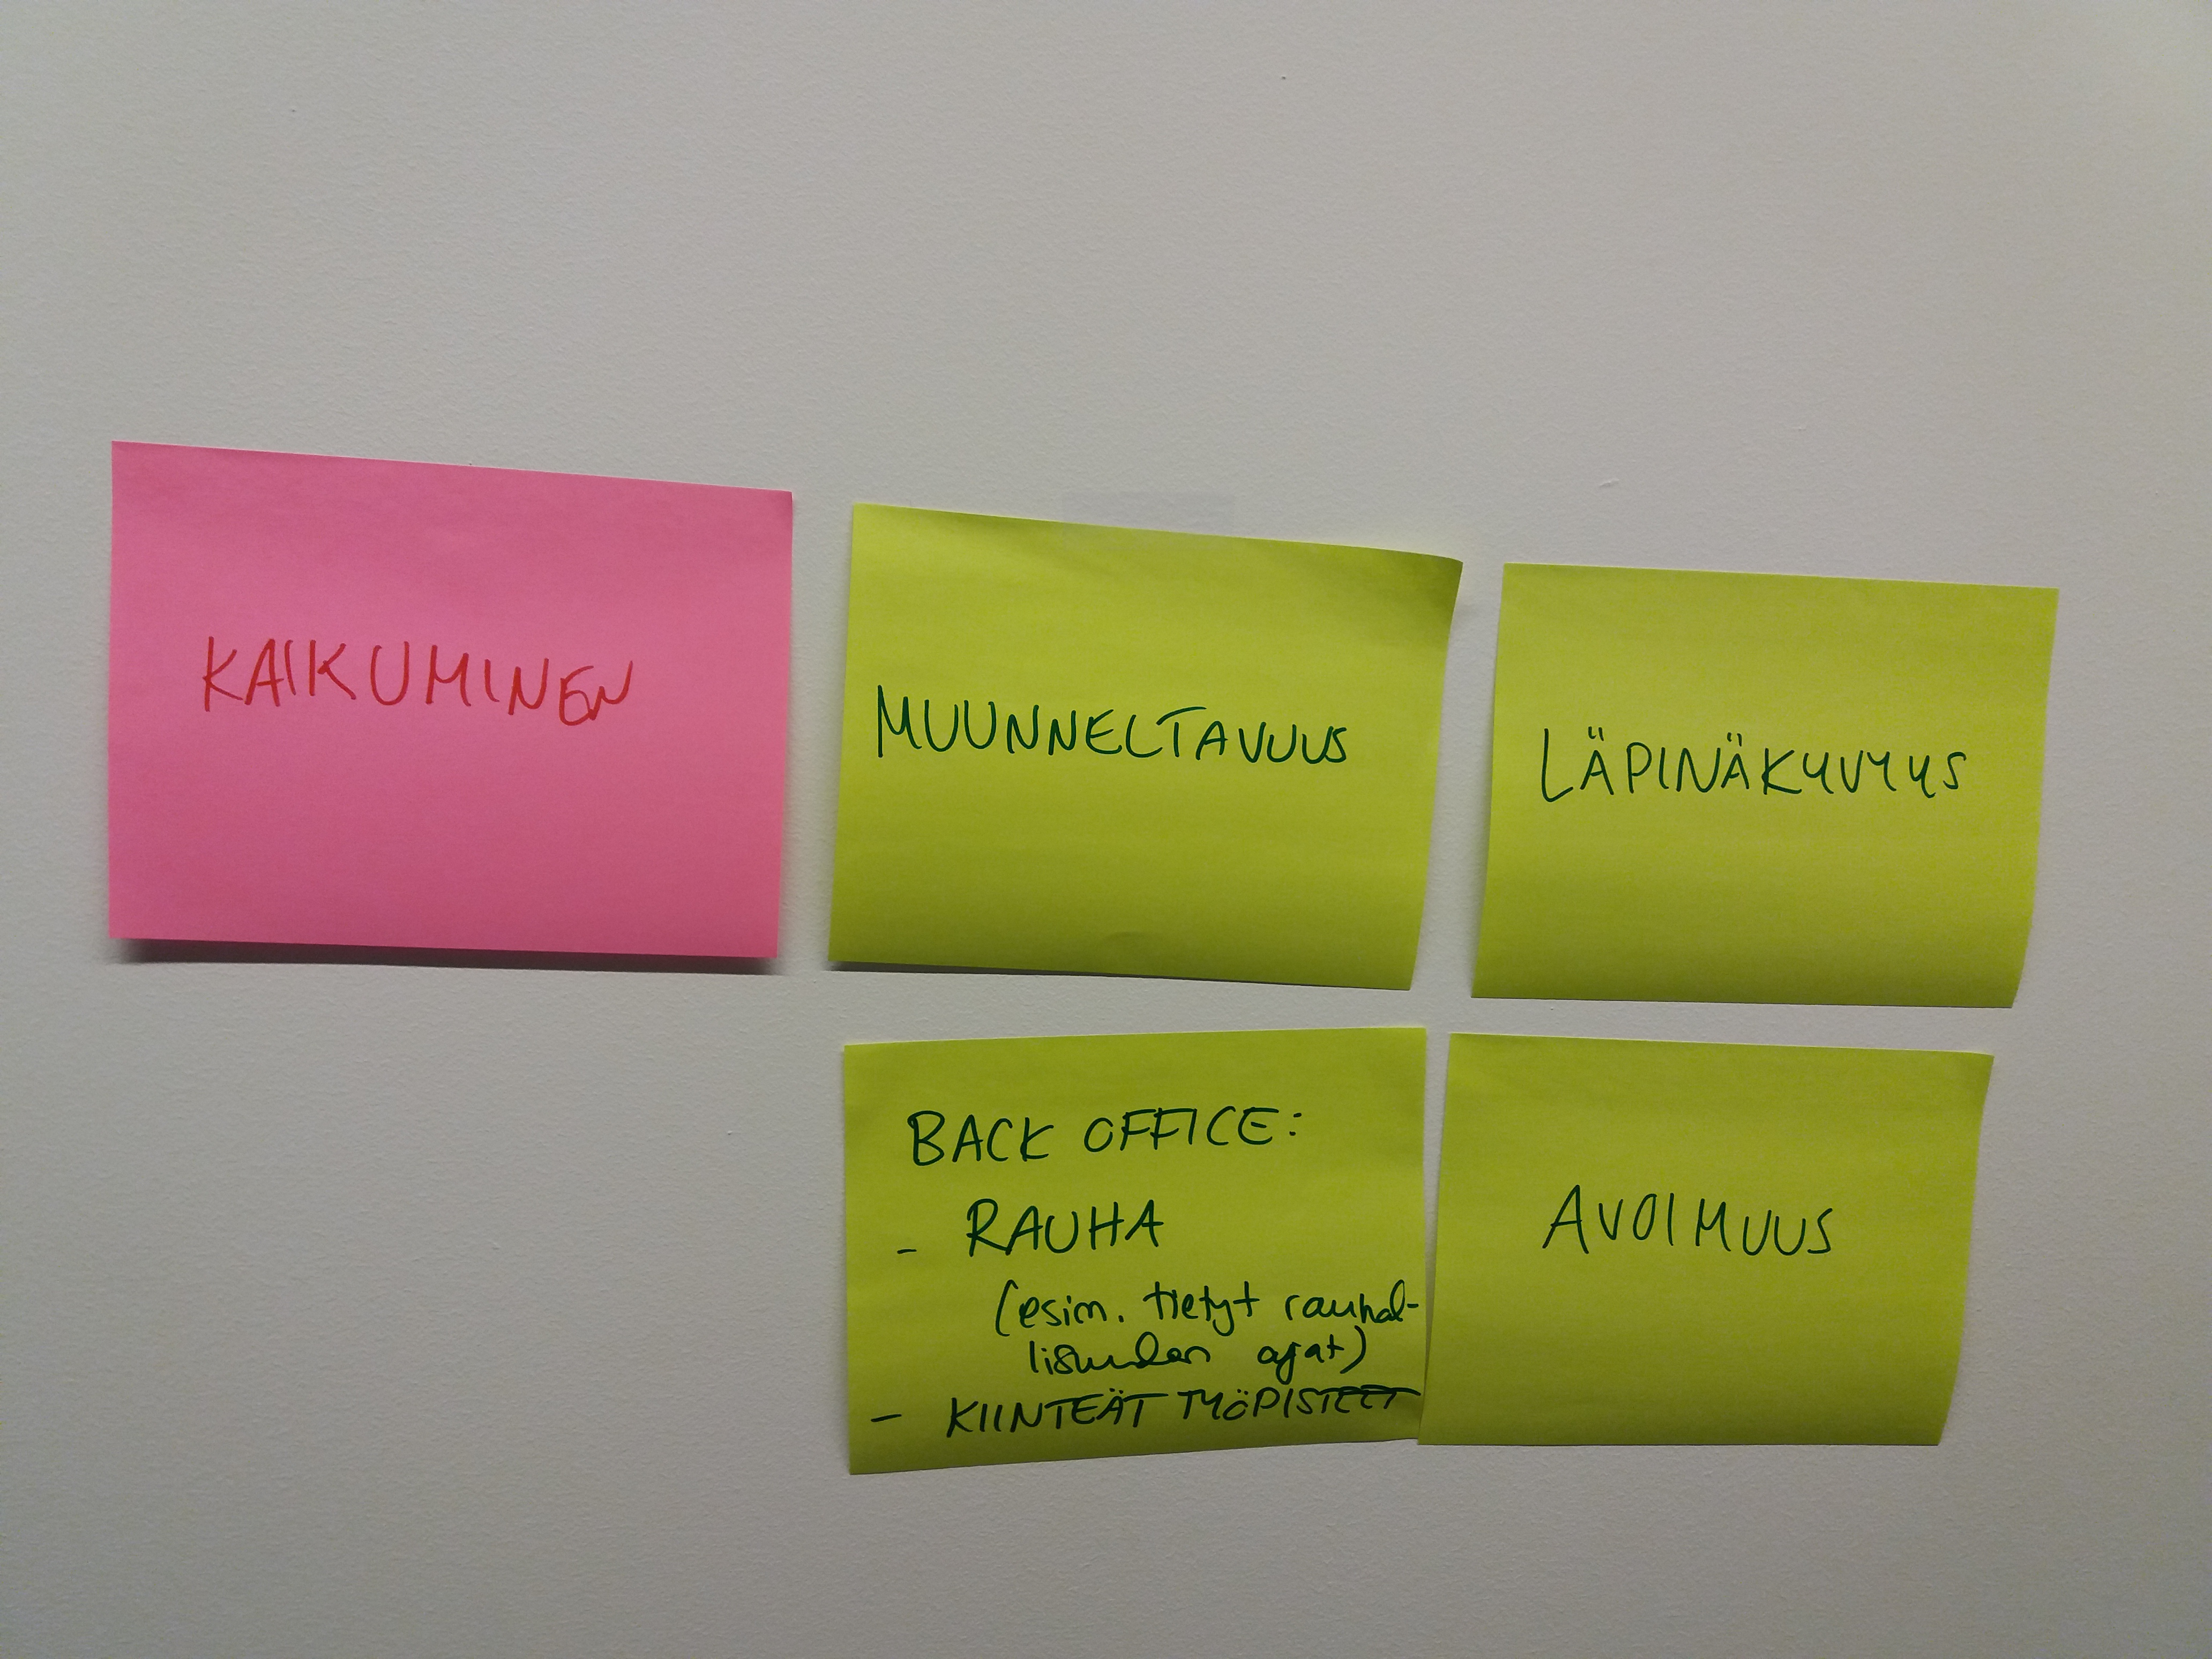 KAIKUMINEN
MUUNNELTAVUUS
LÄPINÄKYVYYS
BACK OFFICE:
- RAUHA
(esim. tietyt rauhal-
lisuuden ajat)
- KIINTEÄT TYÖPISTEET
AVOIMUUS